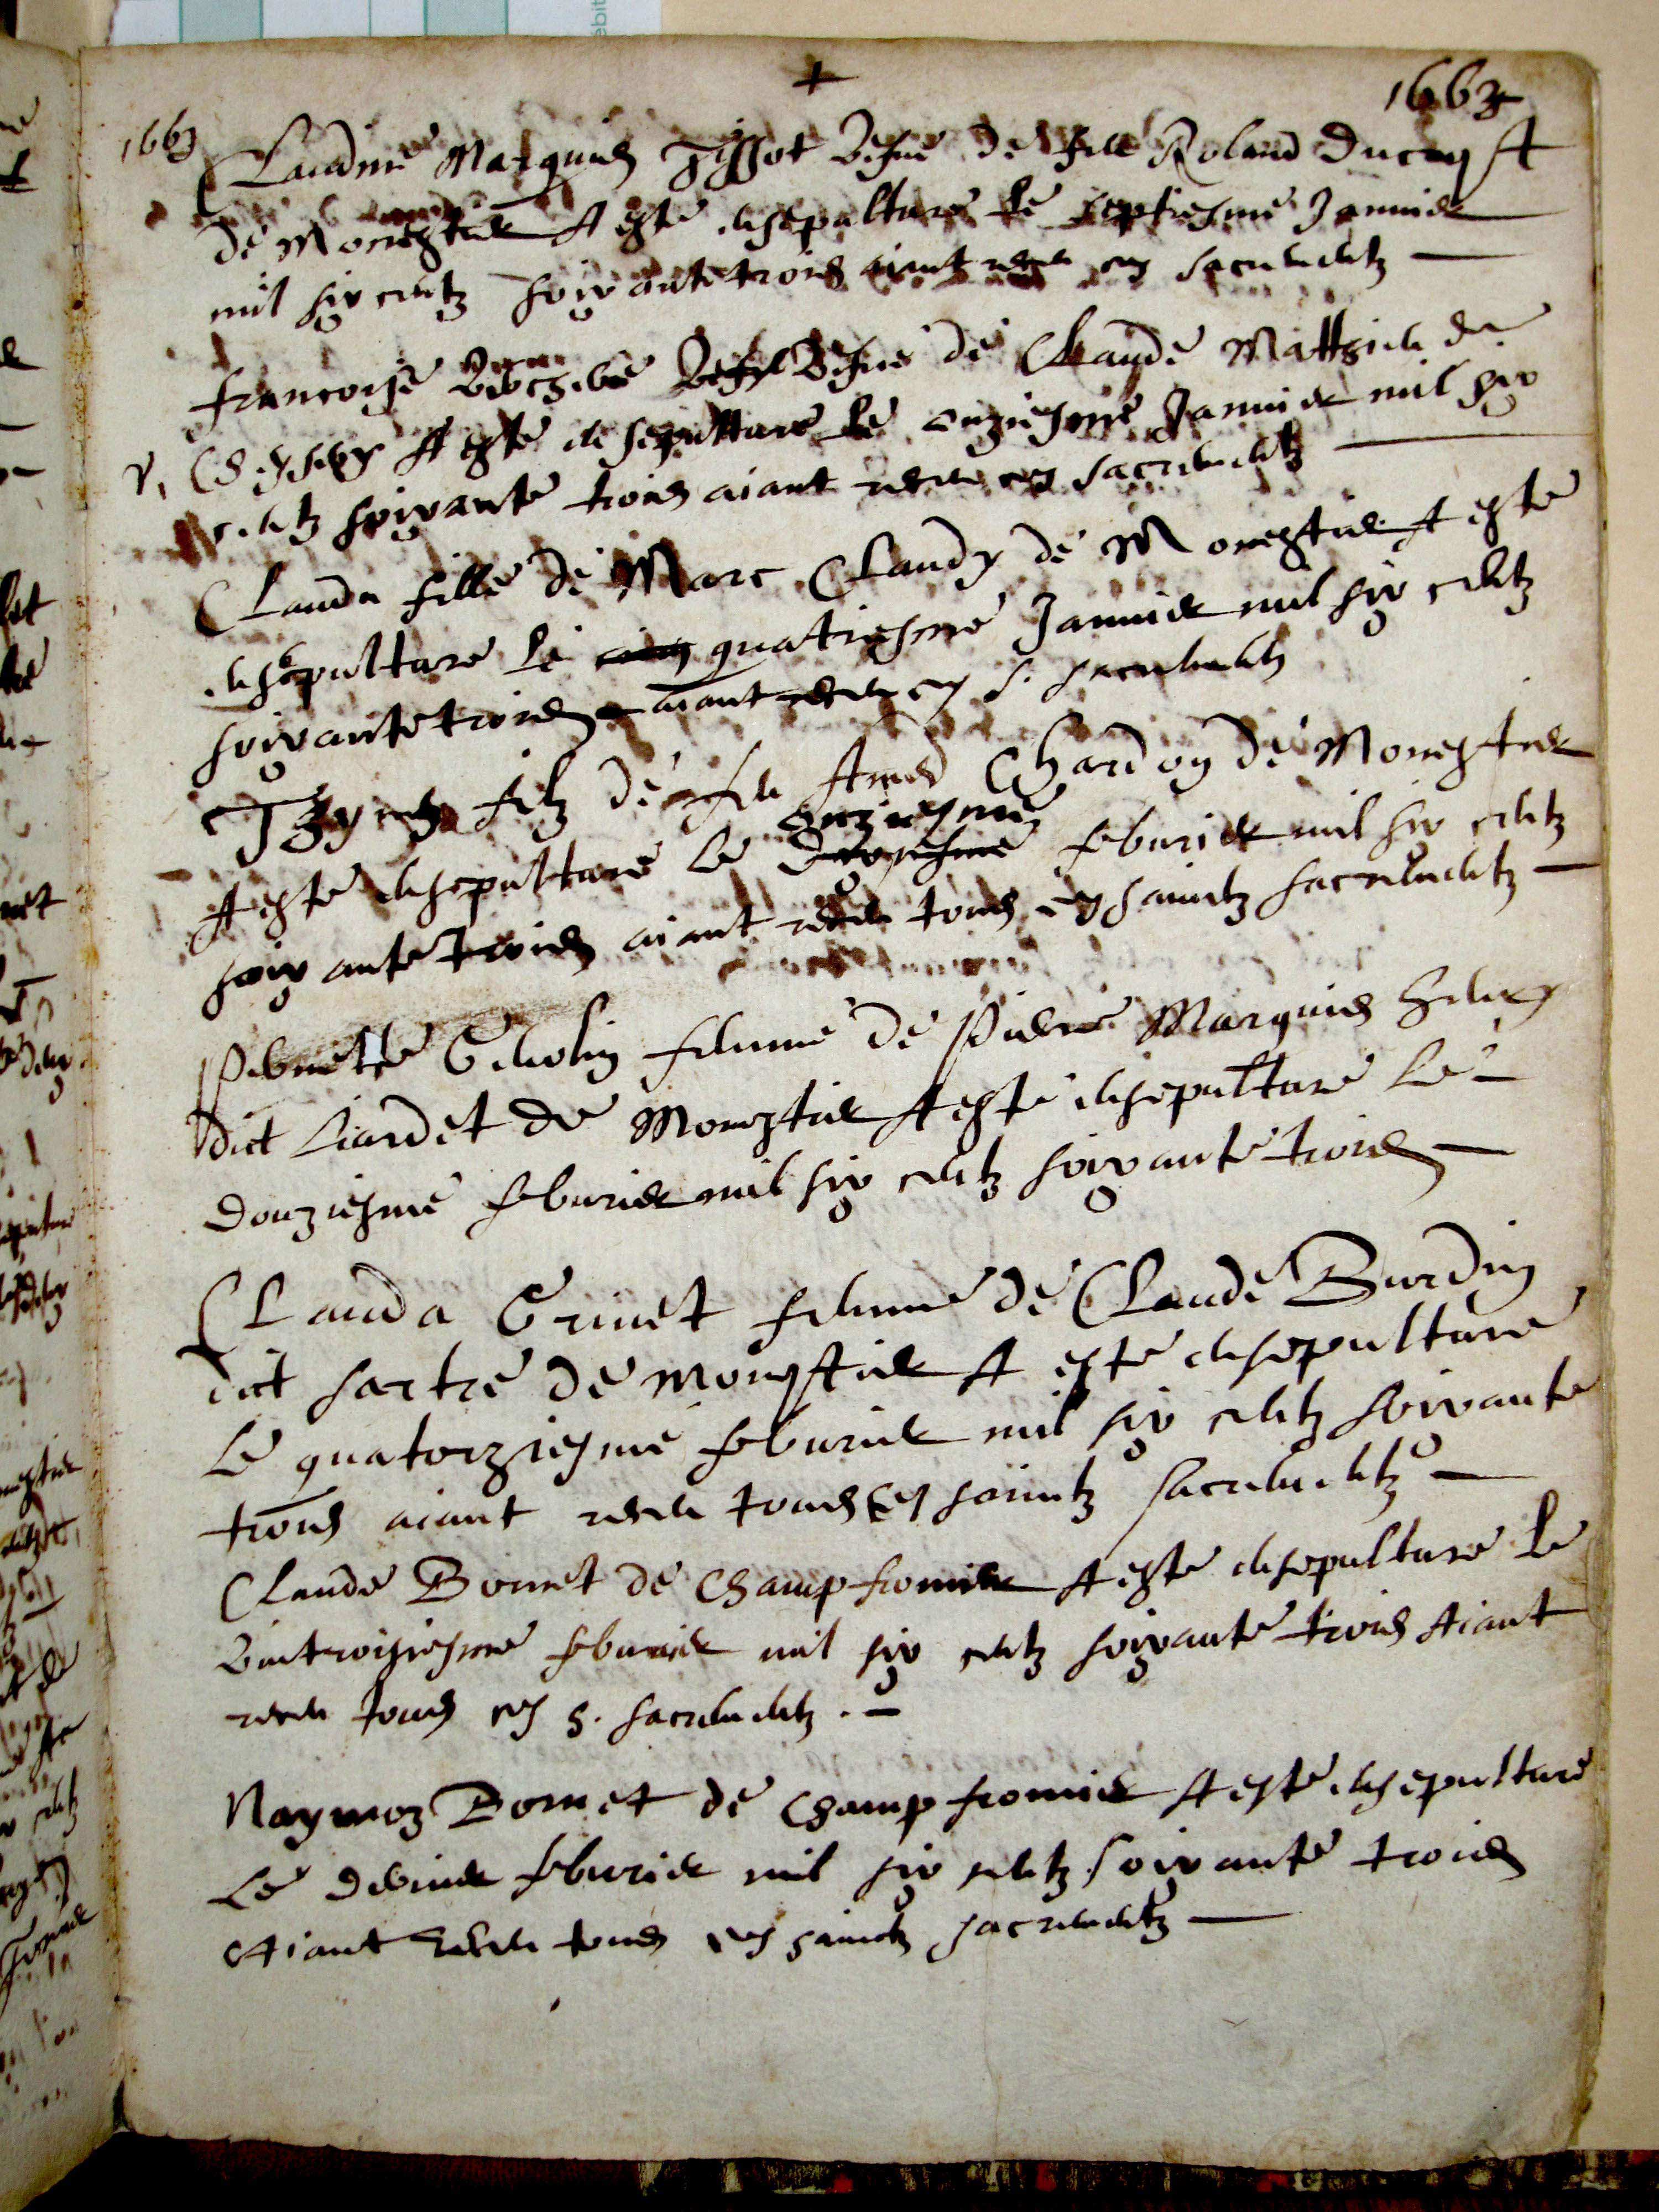 +
1663
1663
Claudine Marquis Tissot vefve de feu Roland Ducret A
de Monestier A este ensepulture le septiesme Januier
mil six centz soixante trois aiant receu ses sacrementz
francoise vefve de Claude Matthieu de
A este ensepulture le onziesme Januier mil six
centz soixante trois aiant receu ses sacrementz
Clauda fille de Marc Claudy de Monestier A este
ensepulture le quatriesme Januier mil six centz
soixante trois aiant receu ses s. sacrementz
filz de feu Amed Chardon de Monestier
onziesme
A este ensepulture le feburier mil six centz
soixante trois aiant receu tous ses saintz sacrementz
Pernette femme de Pierre Marquis
dict Liardet de Monestier A este ensepulture le
douziesme feburier mil six centz soixante trois
Clauda Grinet femme de Claude Burdin
dict sartre de Monestier A este ensepulture
le quatorziesme feburier mil six centz soixante
trois aiant receu tous ses saintz sacrementz
Claude Bornet de Champfromier A este ensepulture le
vintroisiesme feburier mil six centz soixante trois Aiant
receu tous ses s. sacrementz.
Naymoz Bornet de Champfromier A este ensepulture
le dernier feburier mil six centz soixante trois
Aiant receu tous ses sainctz sacrementz